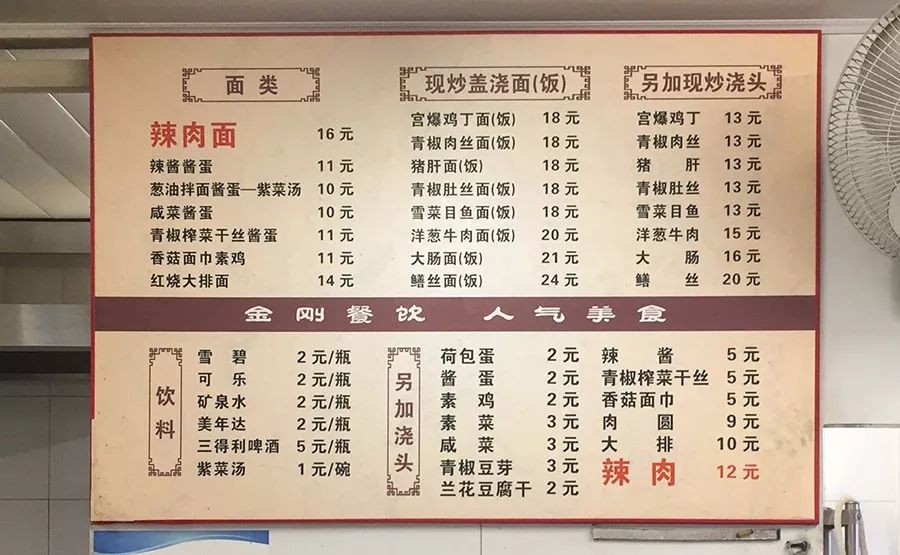 面类
辣肉面 16 元
辣酱酱蛋 11 元
葱油拌面酱蛋—紫菜汤 10 元
咸菜酱蛋 10 元
青椒榨菜干丝酱蛋 11 元
香菇面巾素鸡 11 元
红烧大排面 14 元
现炒盖浇面(饭)
宫爆鸡丁面(饭) 18 元
青椒肉丝面(饭) 18 元
猪肝面(饭) 18 元
青椒肚丝面(饭) 18 元
雪菜目鱼面(饭) 18 元
洋葱牛肉面(饭) 20 元
大肠面(饭) 21 元
鳝丝面(饭) 24 元
另加现炒浇头
宫爆鸡丁 13 元
青椒肉丝 13 元
猪肝 13 元
青椒肚丝 13 元
雪菜目鱼 13 元
洋葱牛肉 15 元
大肠 16 元
鳝丝 20 元
金刚餐饮 人气美食
饮料
雪碧 2 元/瓶
可乐 2 元/瓶
矿泉水 2 元/瓶
美年达 2 元/瓶
三得利啤酒 5 元/瓶
紫菜汤 1 元/碗
另加浇头
荷包蛋 2 元
酱蛋 2 元
素鸡 2 元
素菜 3 元
咸菜 3 元
青椒豆芽 3 元
兰花豆腐干 2 元
辣酱 5 元
青椒榨菜干丝 5 元
香菇面巾 5 元
肉圆 9 元
大排 10 元
辣肉 12 元